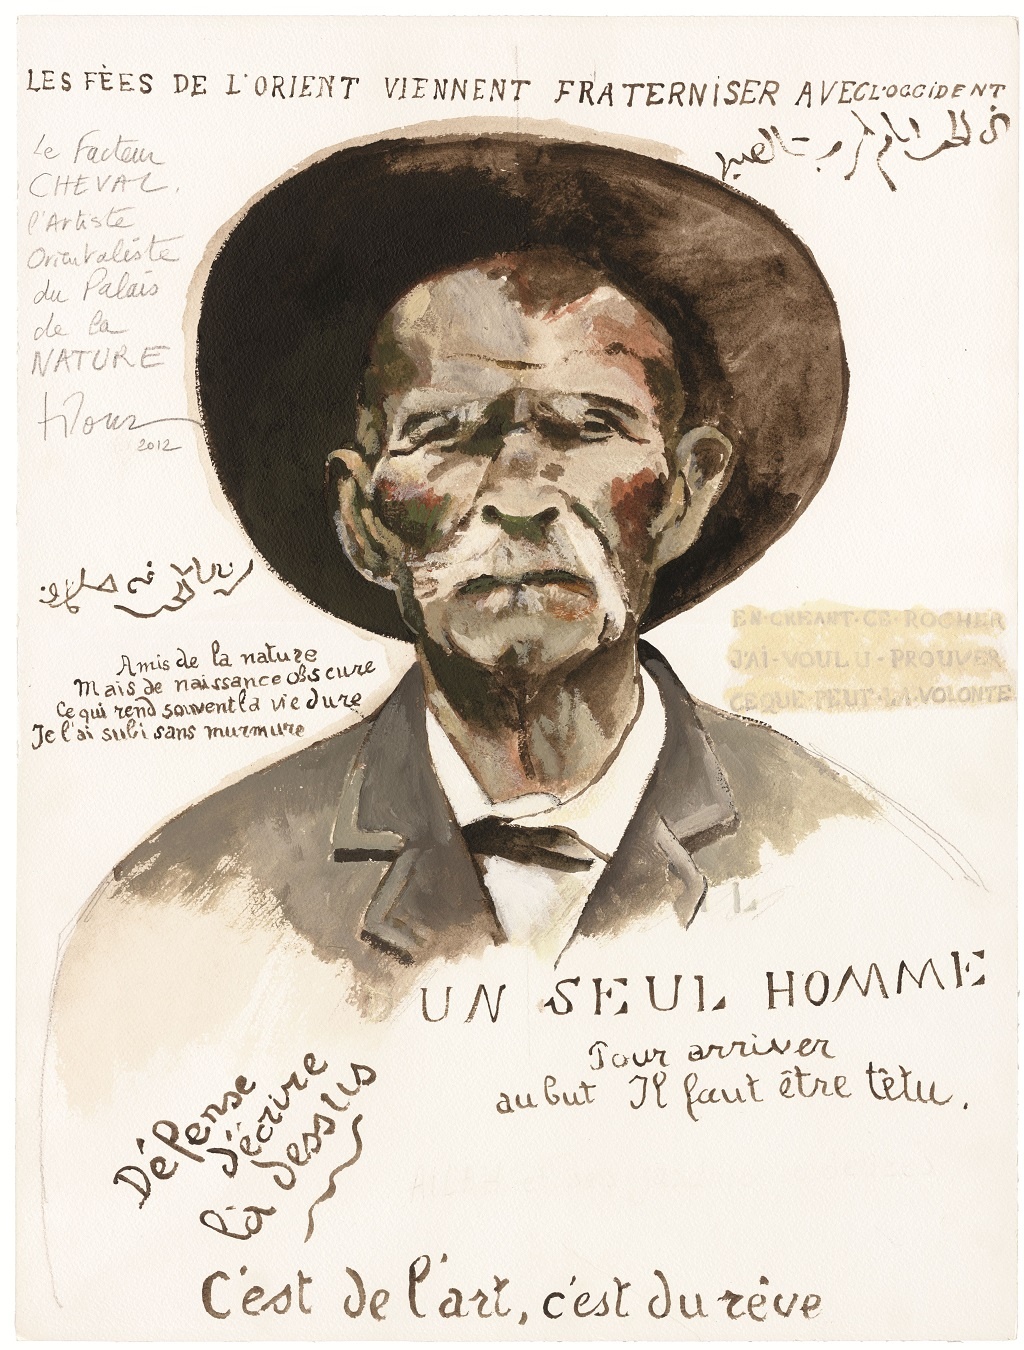 LES FÈES DE L'ORIENT VIENNENT FRATERNISER AVEC L'OCCIDENT
Le Facteur
CHEVAL.
l'Artiste
Orientaliste
du Palais
de la
NATURE
2012
EN·CREANT·CE·ROCHER
J'AI·VOULU·PROUVER
CE QUE PEUT·LA·VOLONTE
Amis de la nature
Mais de naissance obscure
Ce qui rend souvent la vie dure
Je l'ai subi sans murmure
L
UN SEUL HOMME
Pour arriver
au but Il faut être têtu.
Défense
d'écrire
là dessus
C'est de l'art, c'est du rêve